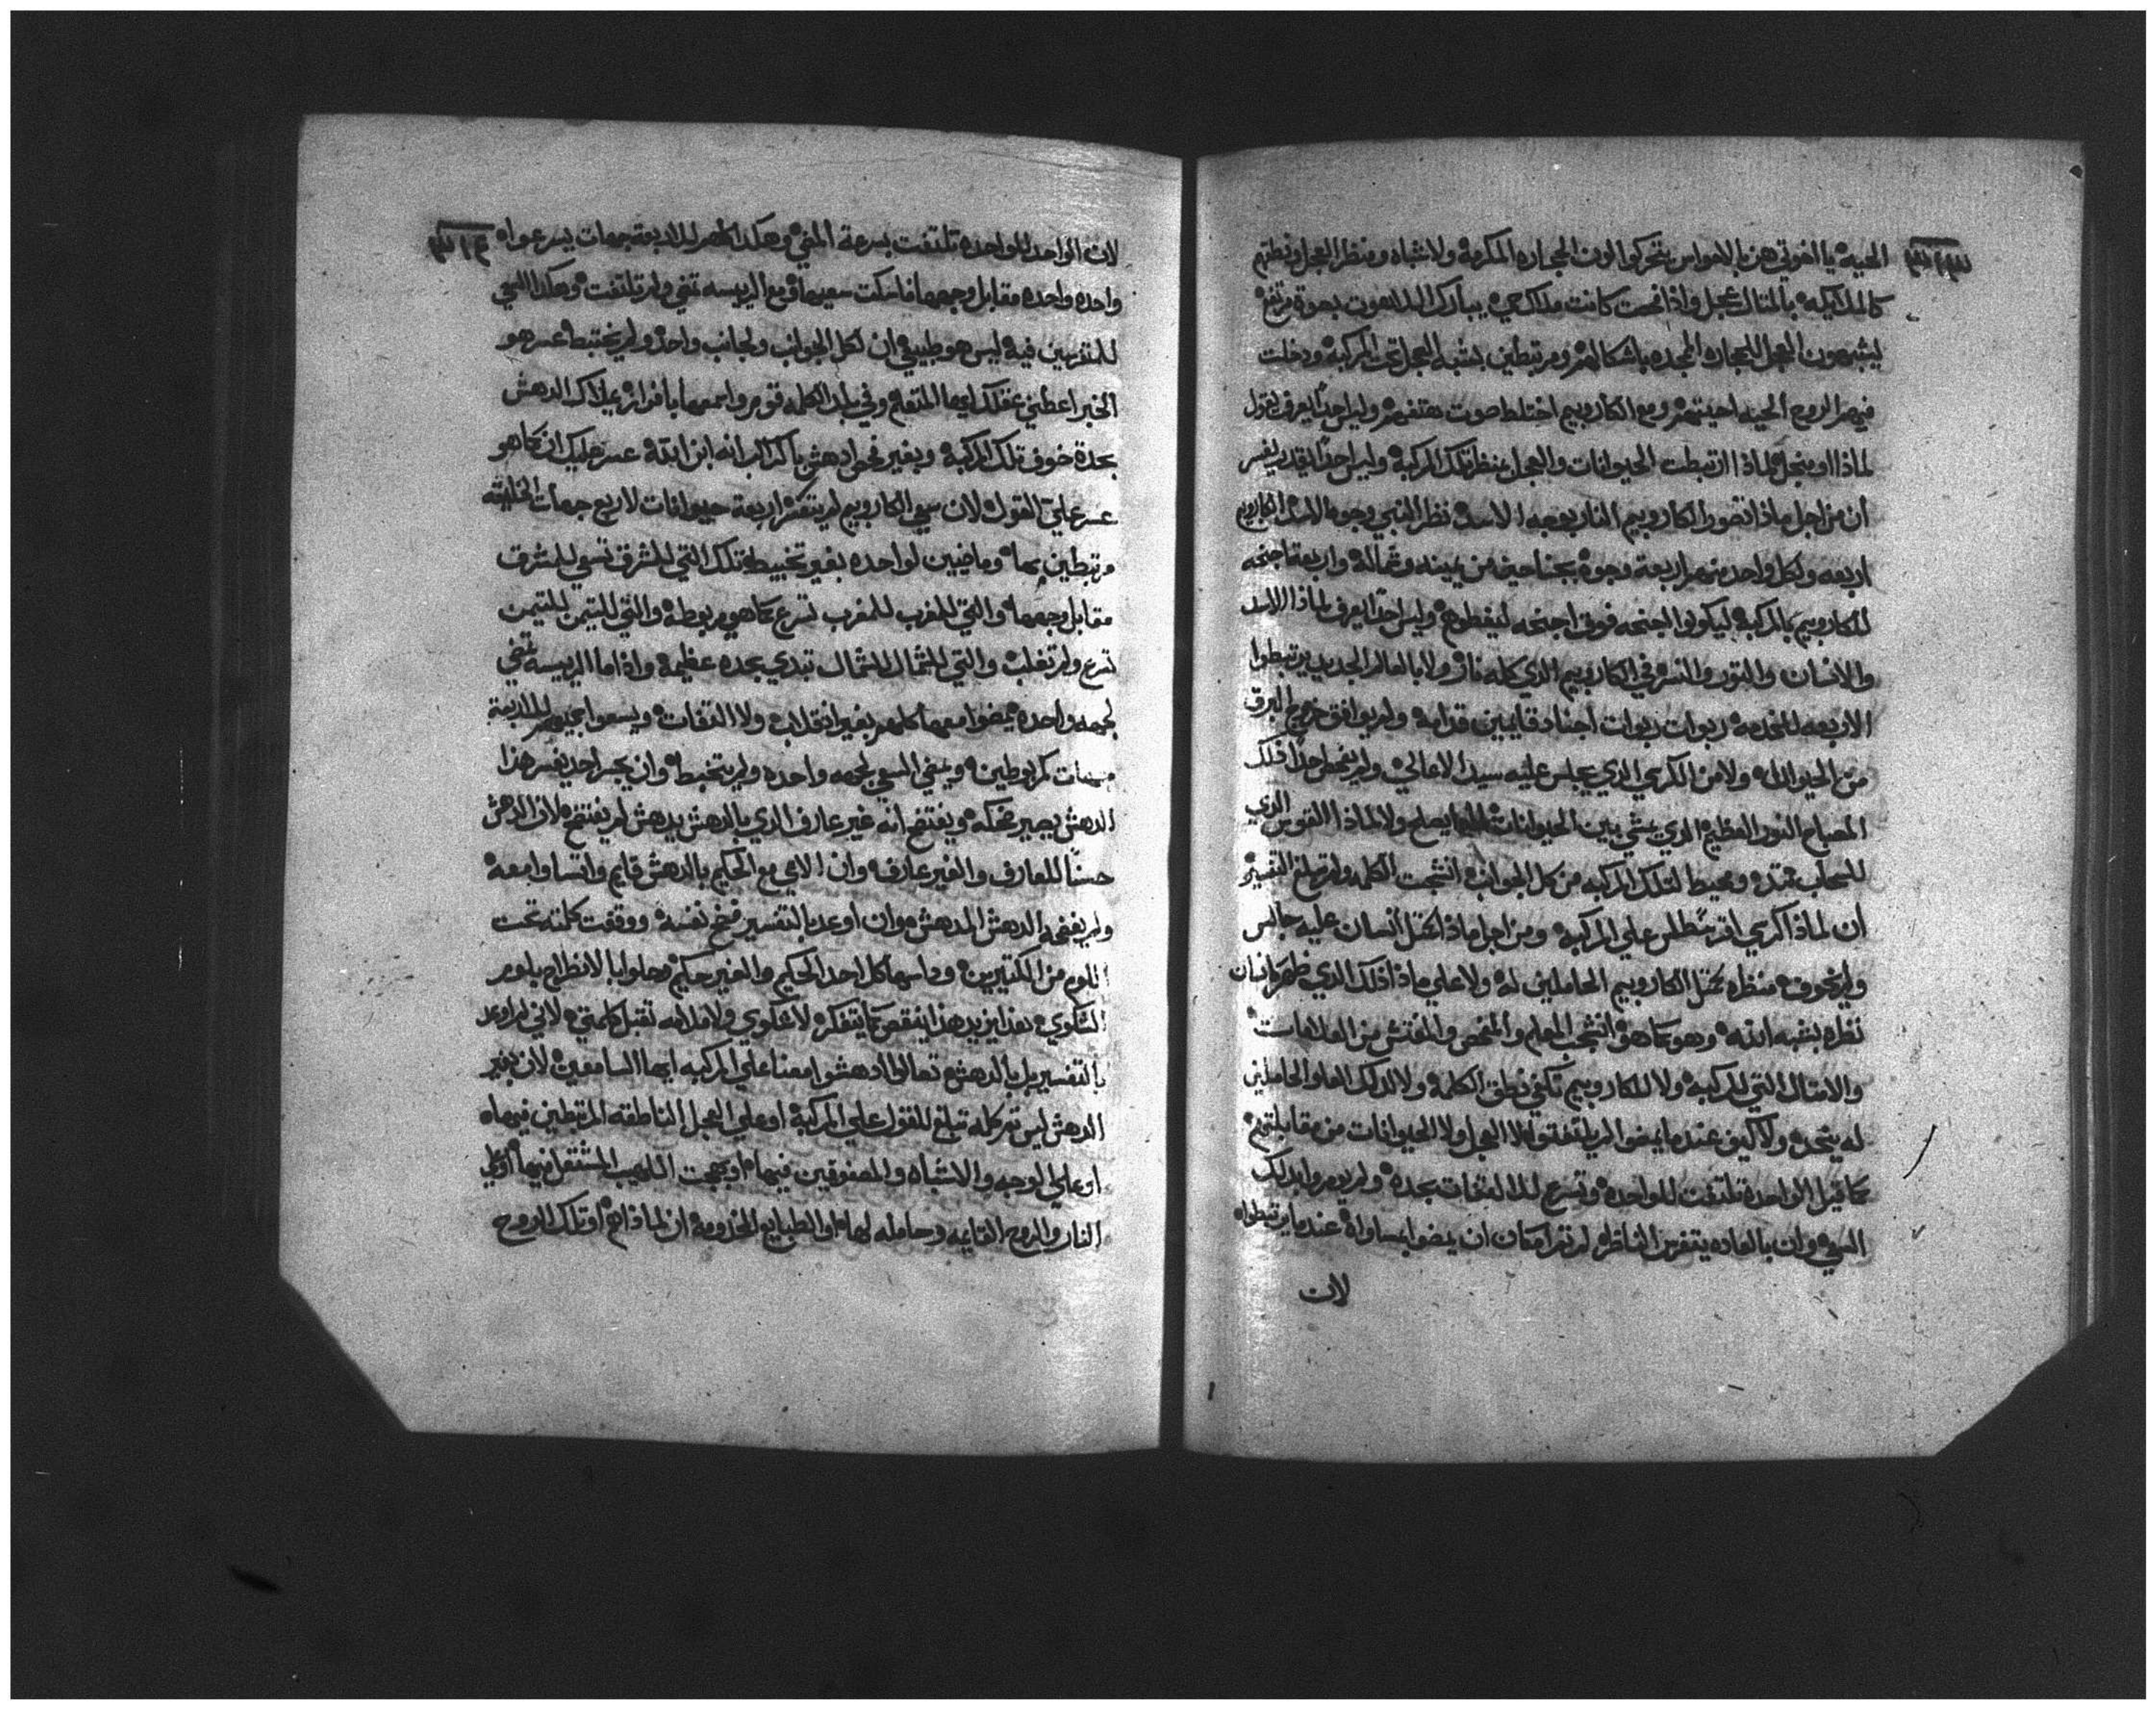 الحيه يا اخوتي هن بالاحواس يتحركوا لون الحجاره المكرمه ولا شباه ومنظر العجل ونطقهم
كالملايكه بالمتال عجل واذا كانت ملاك حي يبارك اللاهوت بصوت مرتفع
يشبهون العجل للحجاره المجده باشكالهم ومرتبطين بشبه العجل تحت المركبه ودخلت
فيهم الروح الحيه احيتهم ومع الكاروبيم اختلط صوت هتفهم وليس احدًا يعرف يقول
لماذا او منجل لماذا ارتبطت الحيوانات والعجل بمنظر تلك المركبه وليس احدًا يقدر يفسر
ان من اجل ماذا تصور الكاروبيم النار بوجه الاسد نظر النبي وجوه الاسد الكاروبيم
اربعه ولكل واحد منهم اربعة وجوه بجناحين من يمينه وشماله واربعة اجنحه
للكاروبيم بالمركبه ليكونوا اجنحه فوق اجنحه ليغطوهم وليس احدًا يعرف لماذا الاسد
والانسان والتور والنسر في الكاروبيم الذي كله نار ولا بالعالم الجديد يرتبطوا
الاربعه للخدمه ربوات ربوات اجناد قايمين قدامه ولم يوافق خروج البرق
من الحيوانات ولا من الكرسي الذي يجلس عليه سيد الاعالي ولم يفحص احدًا فلك
المصباح النور العظيم الذي يمشي بين الحيوانات يصلح ولا لماذا القوس الذي
للسحاب ممتده ومحيط لتلك المركبه من كل الجوانب انشجبت الكلمه ولم تبلغ التفسير
ان لماذا كرسي على المركبه ومن اجل ماذا تمثل انسان عليه جالس
ولم يخوف منظره تحتل الكاروبيم الحاملين له ولا علي ماذا ذلك الذي ظهر بانسان
نظره بشبه ابنه وهو كما هو انشجب المعلم والمفحص والمفتش من العلامات
والامتال التي للمركبه ولا للكاروبيم تكفي نطق الكلمه ولا لذلك العلو الحاملين
له يتحده ولا كيف عندما يمضوا لم يلتفتوا لا العجل ولا الحيوانات من مقابلتهم
كما قيل الواحده تلتفت للواحده وتسرع بحده ولم
السعي وان بالعاده يتفرس الناظر لم تر امكان ان يمضوا بمساواه عندما يرتبطوا
لان
لان الواحد للواحده تلتفت بسرعة المضي وهكذا كلهم للاربعة جهات يسرعوا
واحده واحده مقابل وجهها فاسكت سعيها ومع الريسه تمضي ولم تلتفت وهكذا السعي
للمتفرسين فيه ليس هو طبيعي ان لكل الجوانب ولجانب واحد ولم يختبط عسر هو
الخبر اعطيني عقلك ايها المتعلم وفي بلد الكلمه قوم واسمعها بافراز الدهش
بحدة خوف تلك المركبه وبغير فحص ادهش بان ابن الله عسر عليك ان كما هو
عسر علي القول لان سعي الكاروبيم لم يتفكر اربعة حيوانات لاربع جهات الخليقه
مرتبطين بها وماضيين لواحده بغير تخبيط تلك التي للمشرق تسعي للمشرق
مقابل وجهها والتي للمغرب للمغرب تسرع كما هي مربوطه والتي للتيمن للتيمن
تسرع ولم تغلب والتي للشمال للشمال تبدي بحده عظيمه واذا ما الريسه تمضي
لجهه واحده يمضوا معها كلهم بغير انقلاب ولا التفات ويسعوا جميعهم للاربعة
جهات كمربوطين ويمضي السعي لجهه واحده ولم يتخبط وان يجسر احد يفسر هذا
الدهش يصير ضحكه ويفتضح انه غير عارف الذي بالدهش يدهش لم يفتضح لان الدهش
حسنًا للعارف والغير عارف وان الامي مع الحكيم بالدهش قايم واتساوا معه
ولم يفضحه الدهش للمدهش وان اوعد بالتفسير فضح نفسه ووقفت كلمته تحت
اللوم من الكتيرين وداسها كل احد الحكيم والغير حكيم وحلوا بالانظراح بلوم
الشكوي بغير يزيد هذا ينقص كما يتفكر لا شكوي ولا ملامه تقبل كلمتي لاني لم اوعد
بالتفسير بل بالدهش تعالوا ادهشوا معنا علي المركبه ايها السامعين لان بغير
الدهش ليس تم كلمه تبلغ للقول علي المركبه او علي العجل الناطقه المرتبطين فيها
او علي الوجه والاشباه والمصفوفين فيها او بهجت اللهيب المشتعل فيها
النار والروح القايمه وحامله لها او الطبايع المخدومه ان لماذا هم او تلك الروح